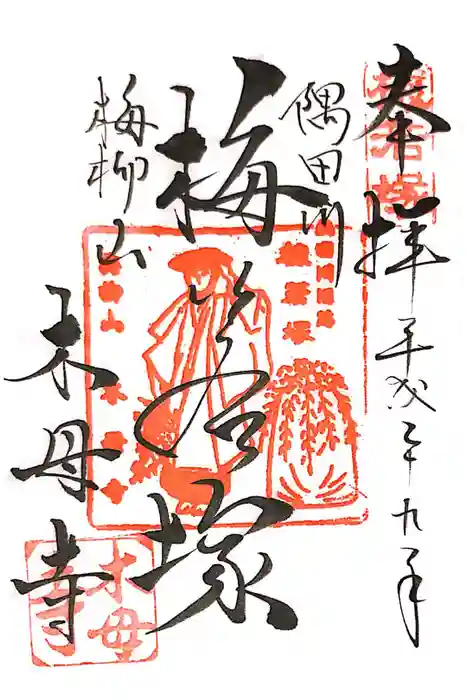 奉拝
平成二十九年
隅田川
梅若塚
梅柳山
木母寺
梅若塚
木母寺